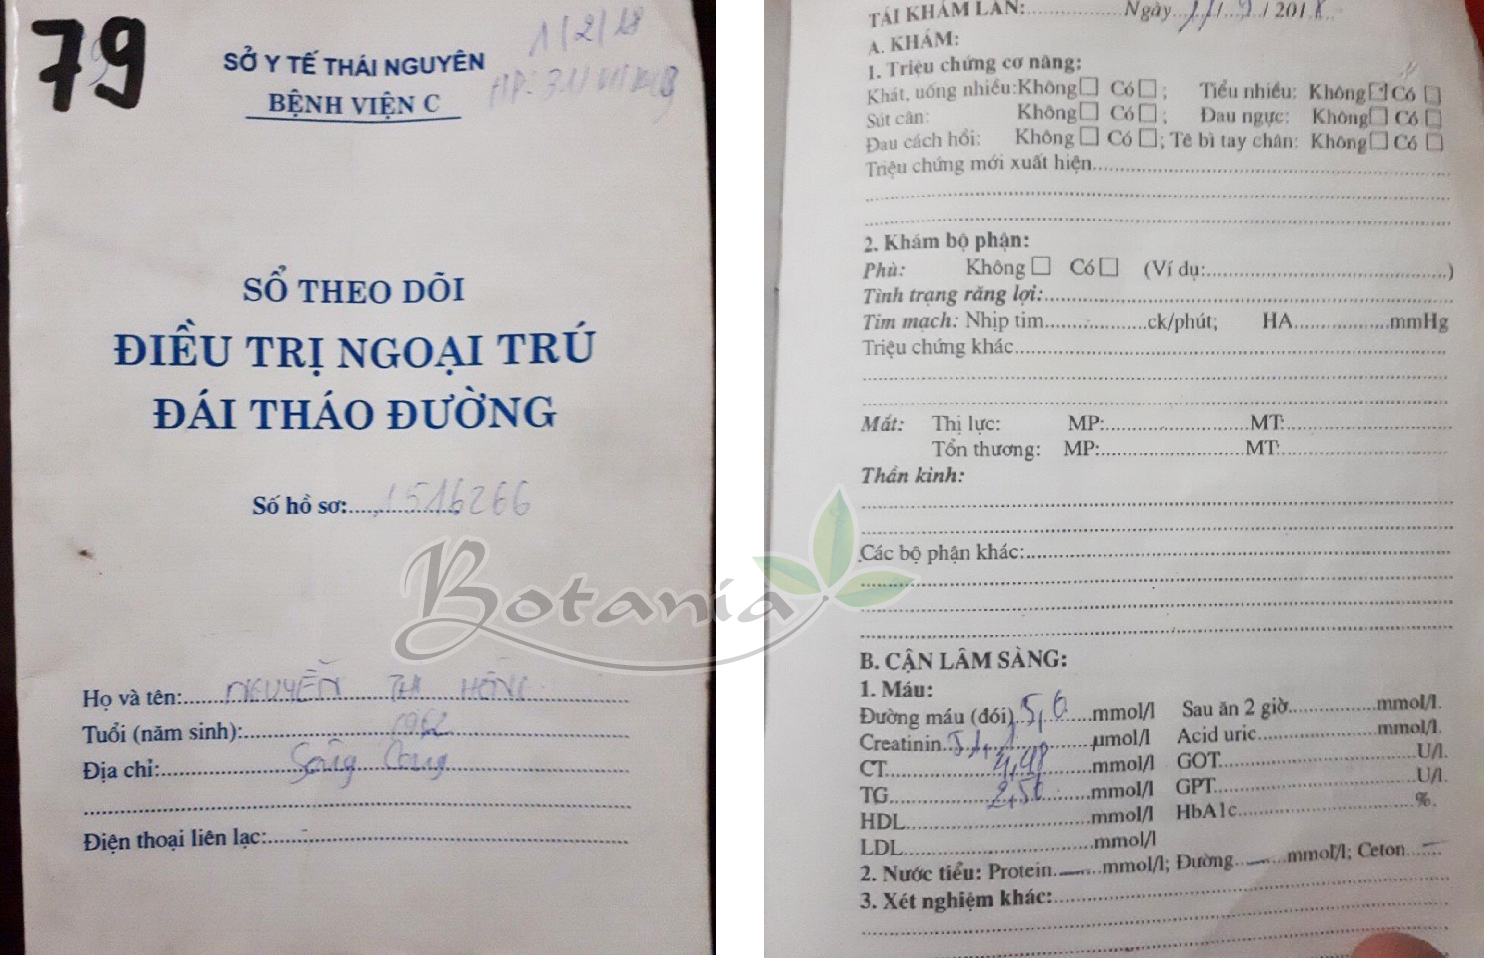 79
1/2/18
SỞ Y TẾ THÁI NGUYÊN
BỆNH VIỆN C
SỔ THEO DÕI
ĐIỀU TRỊ NGOẠI TRÚ
ĐÁI THÁO ĐƯỜNG
Số hồ sơ:.....1516266
Họ và tên:.....NGUYỄN THỊ HỒNG
Tuổi (năm sinh):.....1952
Địa chỉ:.....Sông Công
Điện thoại liên lạc:.....
Botania
TÁI KHÁM LẦN:..... Ngày...../...../201
A. KHÁM:
1. Triệu chứng cơ năng:
Khát, uống nhiều: Không☐ Có☐; Tiểu nhiều: Không☐ Có☐
Sút cân: Không☐ Có☐; Đau ngực: Không☐ Có☐
Đau cách hồi: Không☐ Có☐; Tê bì tay chân: Không☐ Có☐
Triệu chứng mới xuất hiện.....
2. Khám bộ phận:
Phù: Không☐ Có☐ (Ví dụ:.....)
Tình trạng răng lợi:.....
Tim mạch: Nhịp tim.....ck/phút; HA.....mmHg
Triệu chứng khác.....
Mắt: Thị lực: MP:.....MT:.....
Tổn thương: MP:.....MT:.....
Thần kinh:
Các bộ phận khác:.....
B. CẬN LÂM SÀNG:
1. Máu:
Đường máu (đói)..5,6...mmol/l Sau ăn 2 giờ.....mmol/l.
Creatinin.....µmol/l Acid uric.....mmol/l.
CT.....4,48.....mmol/l GOT.....U/l.
TG.....2,56.....mmol/l GPT.....U/l.
HDL.....mmol/l HbA1c.....%.
LDL.....mmol/l
2. Nước tiểu: Protein.....mmol/l; Đường.....mmol/l; Ceton.....
3. Xét nghiệm khác:.....